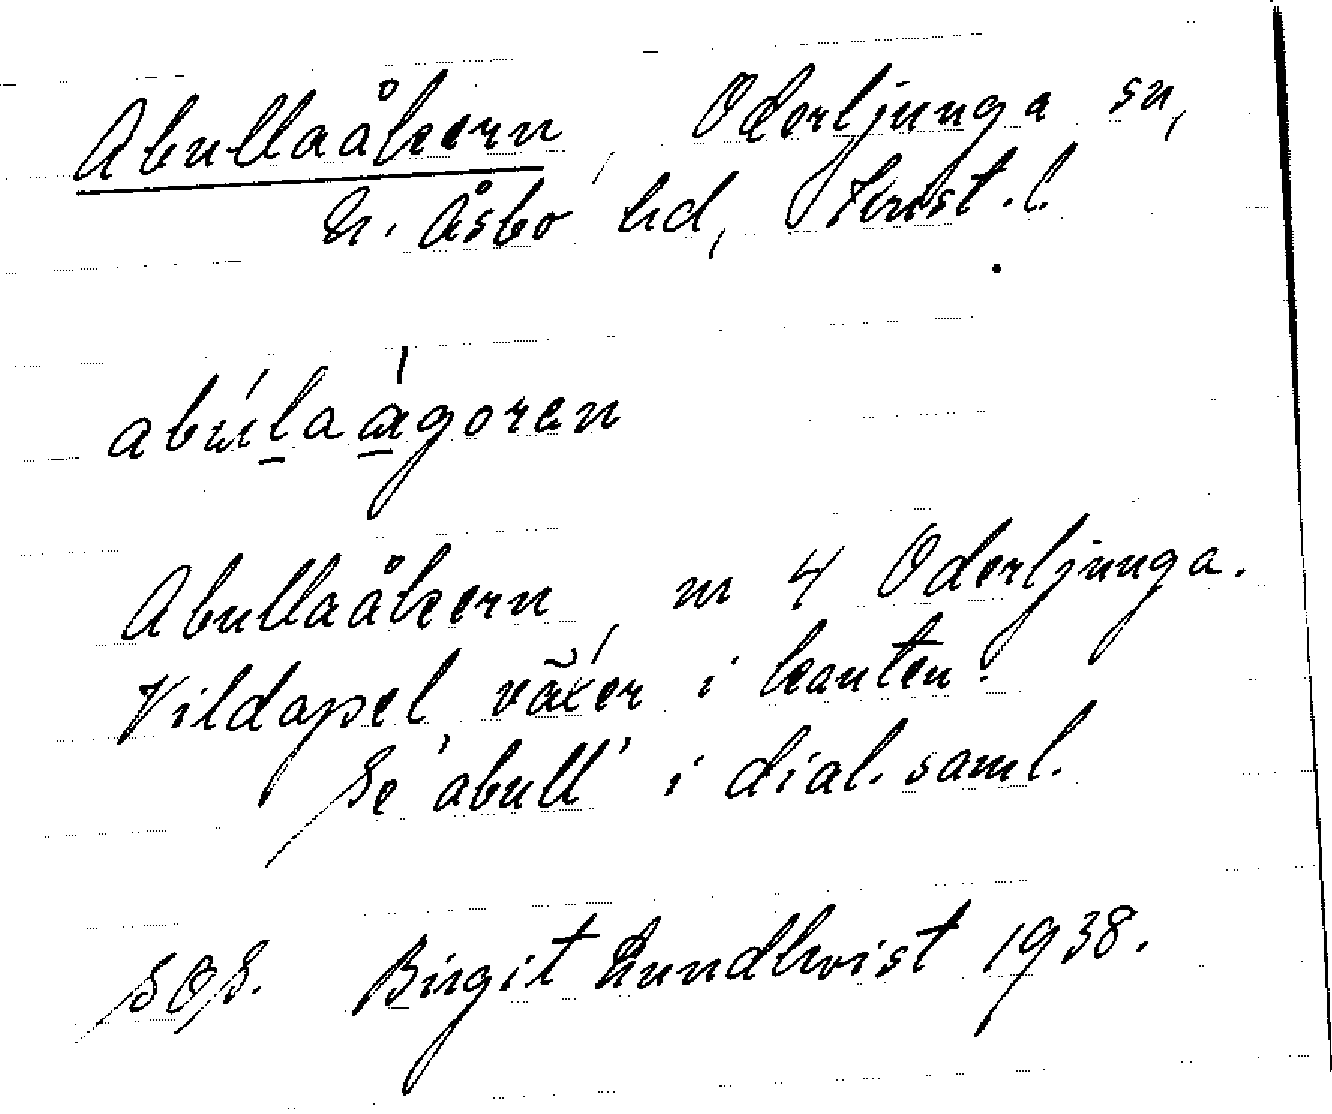 Abullaåkern, Oderljunga sn,
N. Åsbo hd, Krist. l.
abúlaágoren
Abullaåkern, nr 4 Oderljunga.
Vildapel växer i kanten.
Se 'abull' i dial. saml.
SOS. Birgit Lundkvist 1938.